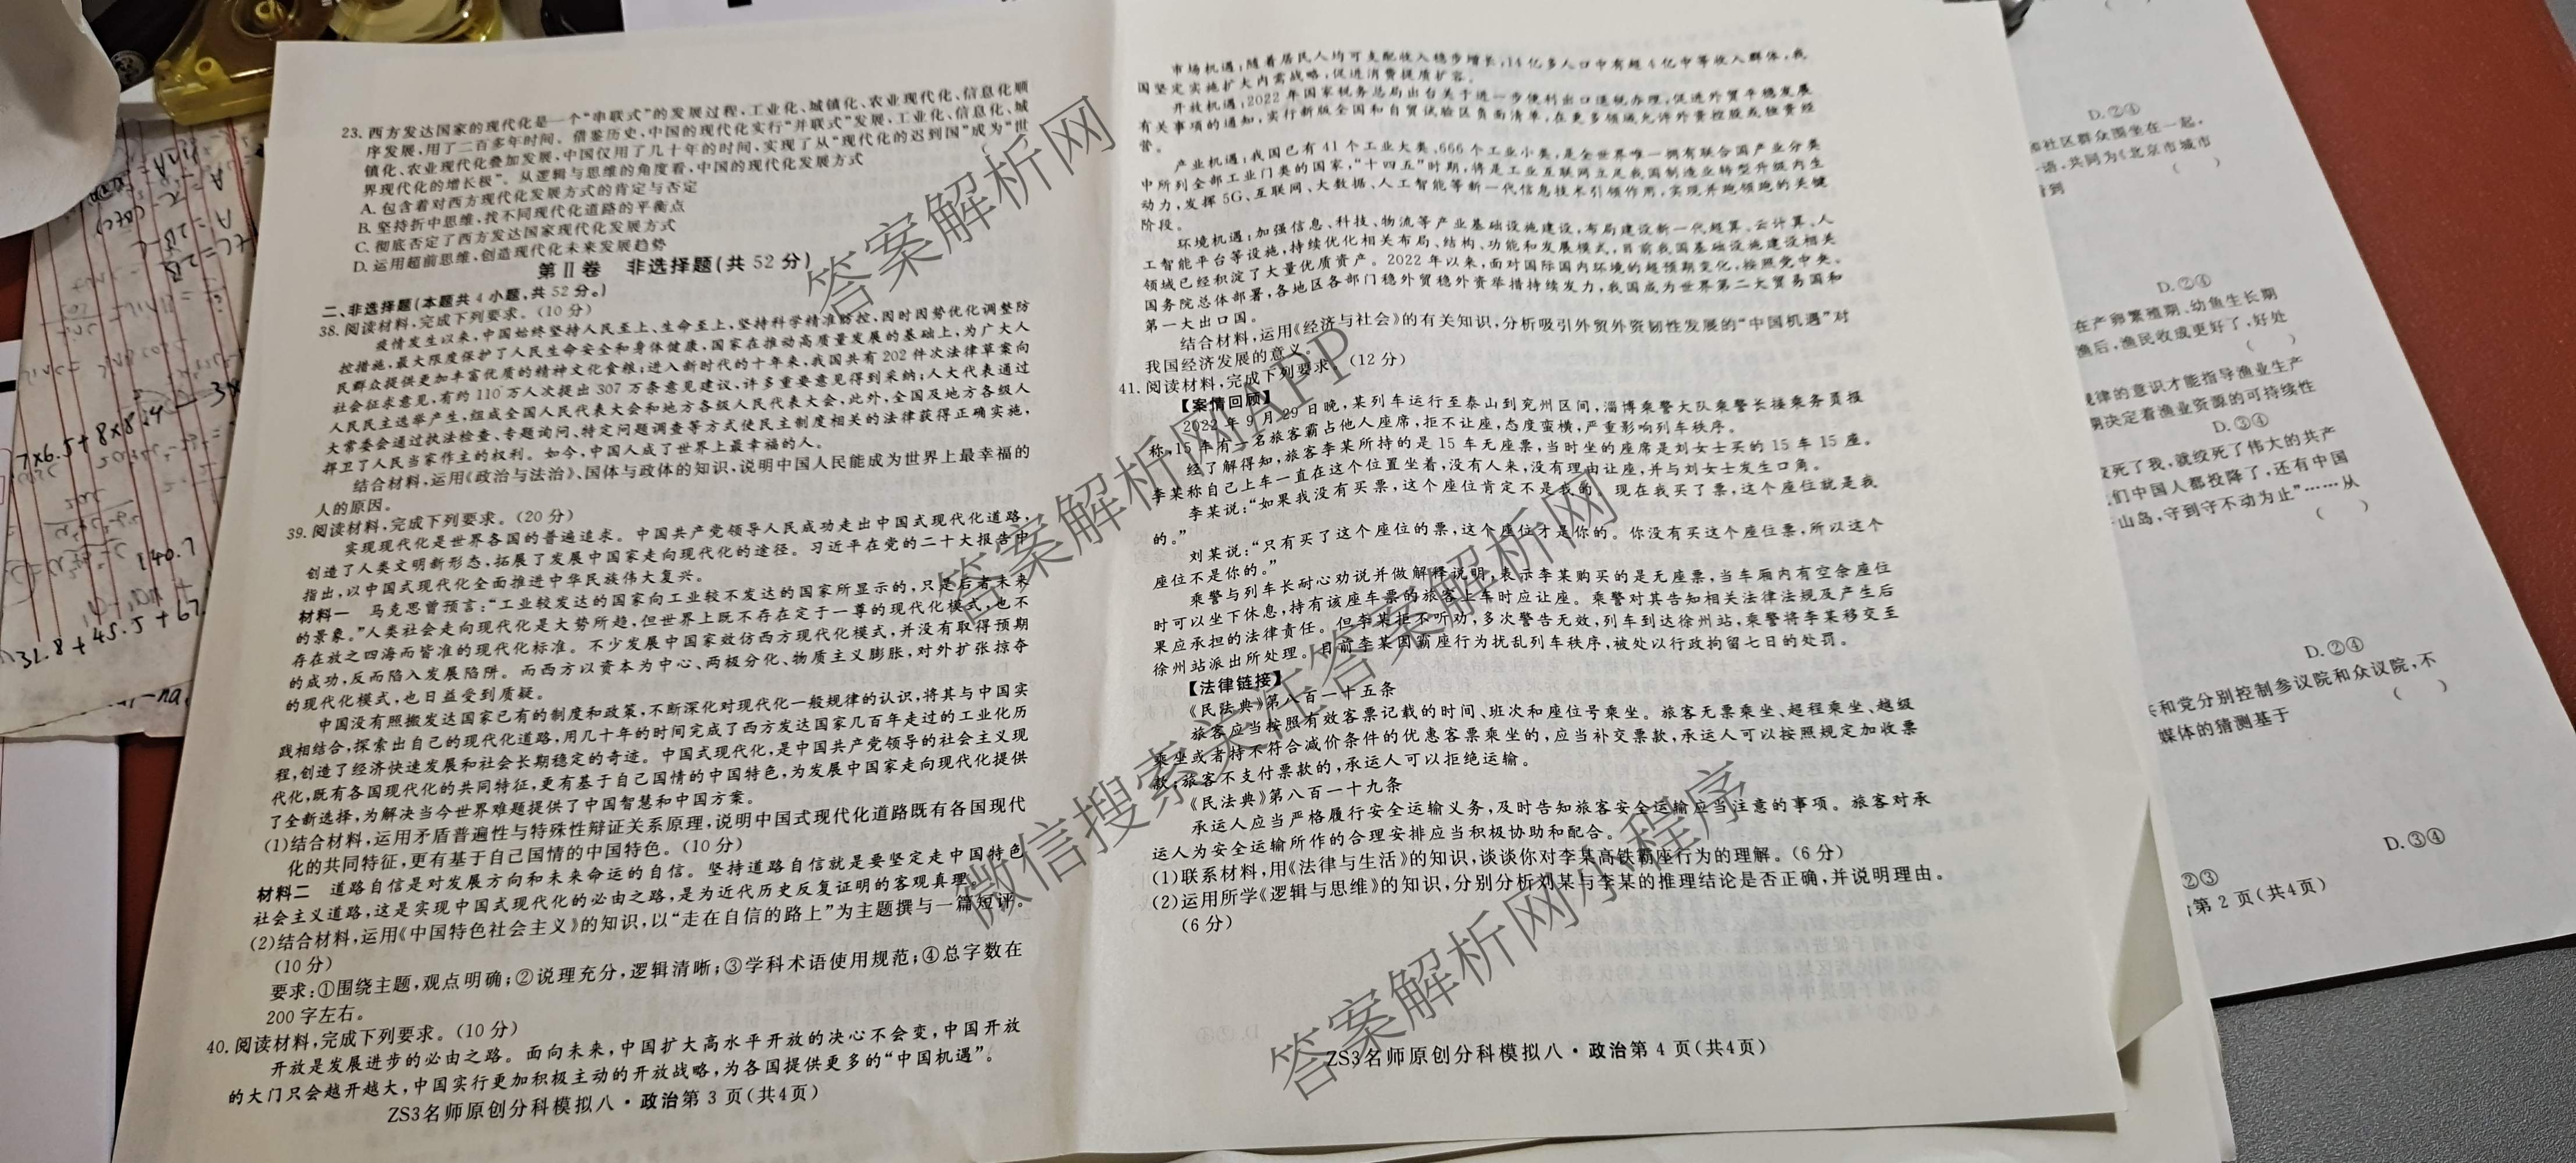 23. 西方发达国家的现代化是一个“串联式”的发展过程,工业化、城镇化、农业现代化、信息化顺
序发展,用了二百多年时间。借鉴历史,中国的现代化实行“并联式”发展,工业化、信息化、城
镇化、农业现代化叠加发展,中国仅用了几十年的时间,实现了从“现代化的迟到国”成为“世
界现代化的增长极”。从逻辑与思维的角度看,中国的现代化发展方式
A. 包含着对西方现代化发展方式的肯定与否定
B. 坚持折中思维,找不同现代化道路的平衡点
C. 彻底否定了西方发达国家现代化发展方式
D. 运用超前思维,创造现代化未来发展趋势
第Ⅱ卷 非选择题(共 52 分)
二、非选择题(本题共 4 小题,共 52 分。)
38. 阅读材料,完成下列要求。(10 分)
疫情发生以来,中国始终坚持人民至上、生命至上,坚持科学精准防控,因时因势优化调整防
控措施,最大限度保护了人民生命安全和身体健康,国家在推动高质量发展的基础上,为广大人
民群众提供更加丰富优质的精神文化食粮;进入新时代的十年来,我国共有 202 件次法律草案向
社会征求意见,有约 110 万人次提出 307 万条意见建议,许多重要意见得到采纳;人大代表通过
人民民主选举产生,组成全国人民代表大会和地方各级人民代表大会,此外,全国及地方各级人
大常委会通过执法检查、专题询问、特定问题调查等方式使民主制度相关的法律获得正确实施,
捍卫了人民当家作主的权利。如今,中国人成了世界上最幸福的人。
结合材料,运用《政治与法治》、国体与政体的知识,说明中国人民能成为世界上最幸福的
人的原因。
39. 阅读材料,完成下列要求。(20 分)
实现现代化是世界各国的普遍追求。中国共产党领导人民成功走出中国式现代化道路,
创造了人类文明新形态,拓展了发展中国家走向现代化的途径。习近平在党的二十大报告中
指出,以中国式现代化全面推进中华民族伟大复兴。
材料一 马克思曾预言:“工业较发达的国家向工业较不发达的国家所显示的,只是后者未来
的景象。”人类社会走向现代化是大势所趋,但世界上既不存在定于一尊的现代化模式,也不
存在放之四海而皆准的现代化标准。不少发展中国家效仿西方现代化模式,并没有取得预期
的成功,反而陷入发展陷阱。而西方以资本为中心、两极分化、物质主义膨胀,对外扩张掠夺
的现代化模式,也日益受到质疑。
中国没有照搬发达国家已有的制度和政策,不断深化对现代化一般规律的认识,将其与中国实
践相结合,探索出自己的现代化道路,用几十年的时间完成了西方发达国家几百年走过的工业化历
程,创造了经济快速发展和社会长期稳定的奇迹。中国式现代化,是中国共产党领导的社会主义现
代化,既有各国现代化的共同特征,更有基于自己国情的中国特色,为发展中国家走向现代化提供
了全新选择,为解决当今世界难题提供了中国智慧和中国方案。
(1)结合材料,运用矛盾普遍性与特殊性辩证关系原理,说明中国式现代化道路既有各国现代
化的共同特征,更有基于自己国情的中国特色。(10 分)
材料二 道路自信是对发展方向和未来命运的自信。坚持道路自信就是要坚定走中国特色
社会主义道路,这是实现中国式现代化的必由之路,是为近代历史反复证明的客观真理。
(2)结合材料,运用《中国特色社会主义》的知识,以“走在自信的路上”为主题撰与一篇短评。
(10 分)
要求:①围绕主题,观点明确;②说理充分,逻辑清晰;③学科术语使用规范;④总字数在
200 字左右。
40. 阅读材料,完成下列要求。(10 分)
开放是发展进步的必由之路。面向未来,中国扩大高水平开放的决心不会变,中国开放
的大门只会越开越大,中国实行更加积极主动的开放战略,为各国提供更多的“中国机遇”。
ZS3名师原创分科模拟八·政治第 3 页(共4页)
市场机遇:随着居民人均可支配收入稳步增长,14 亿多人口中有超 4 亿中等收入群体,我
国坚定实施扩大内需战略,促进消费提质扩容。
开放机遇:2022 年国家税务总局出台关于进一步便利出口退税办理,促进外贸平稳发展
有关事项的通知,实行新版全国和自贸试验区负面清单,在更多领域允许外资控股或独资经
营。
产业机遇:我国已有 41 个工业大类、666 个工业小类,是全世界唯一拥有联合国产业分类
中所列全部工业门类的国家,“十四五”时期,将是工业互联网立足我国制造业转型升级内生
动力,发挥 5G、互联网、大数据、人工智能等新一代信息技术引领作用,实现并跑领跑的关键
阶段。
环境机遇:加强信息、科技、物流等产业基础设施建设,布局建设新一代超算、云计算、人
工智能平台等设施,持续优化相关布局、结构、功能和发展模式,目前我国基础设施建设相关
领域已经积淀了大量优质资产。2022 年以来,面对国际国内环境的超预期变化,按照党中央、
国务院总体部署,各地区各部门稳外贸稳外资举措持续发力,我国成为世界第二大贸易国和
第一大出口国。
结合材料,运用《经济与社会》的有关知识,分析吸引外贸外资韧性发展的“中国机遇”对
我国经济发展的意义。
41. 阅读材料,完成下列要求。(12 分)
【案情回顾】
2022 年 9 月 29 日晚,某列车运行至泰山到兖州区间,淄博乘警大队乘警长接乘务员报
称,15 车有一名旅客霸占他人座席,拒不让座,态度蛮横,严重影响列车秩序。
经了解得知,旅客李某所持的是 15 车无座票,当时坐的座席是刘女士买的 15 车 15 座。
李某称自己上车一直在这个位置坐着,没有人来,没有理由让座,并与刘女士发生口角。
李某说:“如果我没有买票,这个座位肯定不是我的。现在我买了票,这个座位就是我
的。”
刘某说:“只有买了这个座位的票,这个座位才是你的。你没有买这个座位票,所以这个
座位不是你的。”
乘警与列车长耐心劝说并做解释说明,表示李某购买的是无座票,当车厢内有空余座位
时可以坐下休息,持有该座车票的旅客上车时应让座。乘警对其告知相关法律法规及产生后
果应承担的法律责任。但李某拒不听劝,多次警告无效,列车到达徐州站,乘警将李某移交至
徐州站派出所处理。目前李某因霸座行为扰乱列车秩序,被处以行政拘留七日的处罚。
【法律链接】
《民法典》第八百一十五条
旅客应当按照有效客票记载的时间、班次和座位号乘坐。旅客无票乘坐、超程乘坐、越级
乘坐或者持不符合减价条件的优惠客票乘坐的,应当补交票款,承运人可以按照规定加收票
款;旅客不支付票款的,承运人可以拒绝运输。
《民法典》第八百一十九条
承运人应当严格履行安全运输义务,及时告知旅客安全运输应当注意的事项。旅客对承
运人为安全运输所作的合理安排应当积极协助和配合。
(1)联系材料,用《法律与生活》的知识,谈谈你对李某高铁霸座行为的理解。(6 分)
(2)运用所学《逻辑与思维》的知识,分别分析刘某与李某的推理结论是否正确,并说明理由。
(6 分)
ZS3名师原创分科模拟八·政治第 4 页(共4页)
D. ②④
社区群众围坐在一起,
语,共同为《北京市城市
( )
D. ②④
在产卵繁殖期、幼鱼生长期
渔后,渔民收成更好了,好处
( )
规律的意识才能指导渔业生产
期决定着渔业资源的可持续性
D. ③④
死了我,就绞死了伟大的共产
们中国人都投降了,还有中国
山岛,守到守不动为止”……从
( )
D. ②④
和党分别控制参议院和众议院,不
媒体的猜测基于
( )
D. ③④
②③
第 2 页(共4页)
7×6.5+8×8.4
31.8+45.5+67
140.7
答案解析网
答案解析网APP
微信搜索关注答案解析网
答案解析网小程序